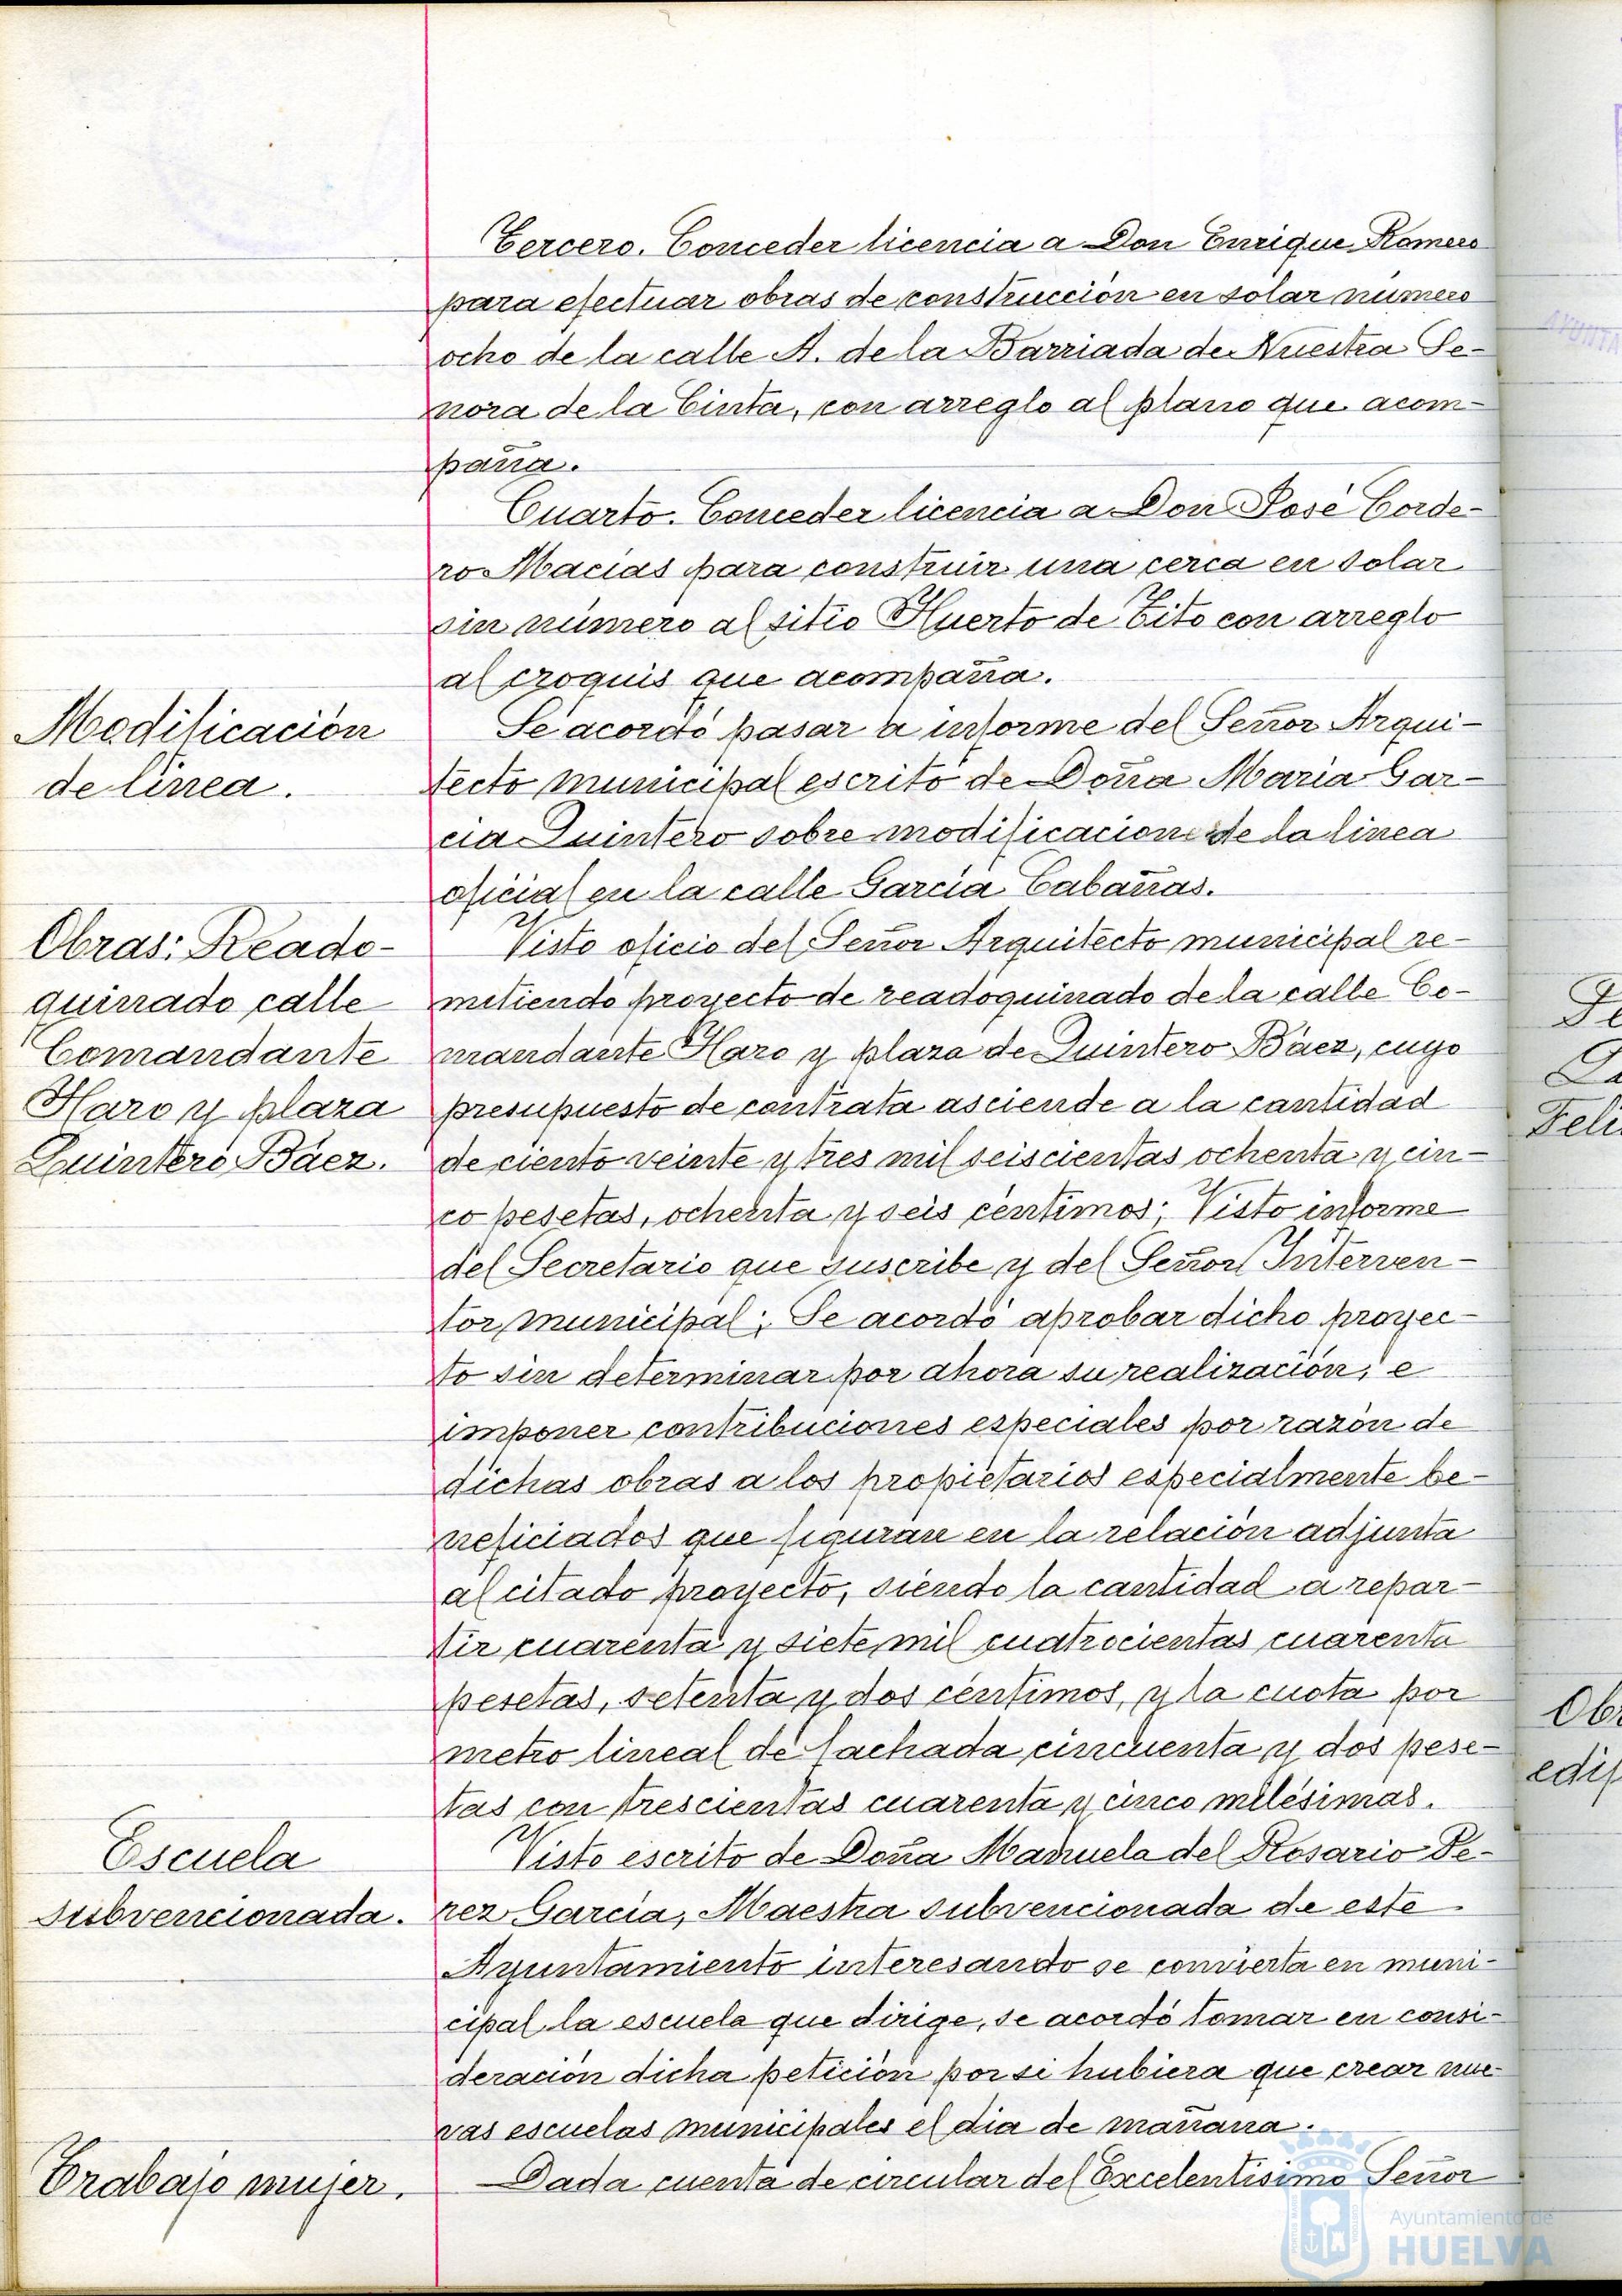 Tercero. Conceder licencia a Don Enrique Romero
para efectuar obras de construcción en solar número
ocho de la calle A. de la Barriada de Nuestra Se-
ñora de la Cinta, con arreglo al plano que acom-
paña.
Cuarto. Conceder licencia a Don José Corde-
ro Macías para construir una cerca en solar
sin número al sitio Huerto de Tito con arreglo
al croquis que acompaña.
Modificación
de línea.
Se acordó pasar a informe del Señor Arqui-
tecto municipal escrito de Doña María Gar-
cia Quintero sobre modificacion de la linea
oficial en la calle García Cabañas.
Obras: Reado-
quinado calle
Comandante
Haro y plaza
Quintero Báez.
Visto oficio del Señor Arquitecto municipal re-
mitiendo proyecto de readoquinado de la calle Co-
mandante Haro y plaza de Quintero Báez, cuyo
presupuesto de contrata asciende a la cantidad
de ciento veinte y tres mil seiscientas ochenta y cin-
co pesetas, ochenta y seis céntimos; Visto informe
del Secretario que suscribe y del Señor Interven-
tor municipal; Se acordó aprobar dicho proyec-
to sin determinar por ahora su realización, e
imponer contribuciones especiales por razón de
dichas obras a los propietarios especialmente be-
neficiados que figuran en la relación adjunta
al citado proyecto, siendo la cantidad a repar-
tir cuarenta y siete mil cuatrocientas cuarenta
pesetas, setenta y dos céntimos, y la cuota por
metro lineal de fachada cincuenta y dos pese-
tas con trescientas cuarenta y cinco milésimas.
Escuela
subvencionada.
Visto escrito de Doña Manuela del Rosario Pe-
rez García, Maestra subvencionada de este
Ayuntamiento interesando se convierta en muni-
cipal la escuela que dirige, se acordó tomar en consi-
deración dicha petición por si hubiera que crear nue-
vas escuelas municipales el dia de mañana.
Trabajo mujer.
Dada cuenta de circular del Excelentísimo Señor
Ayuntamiento de
HUELVA